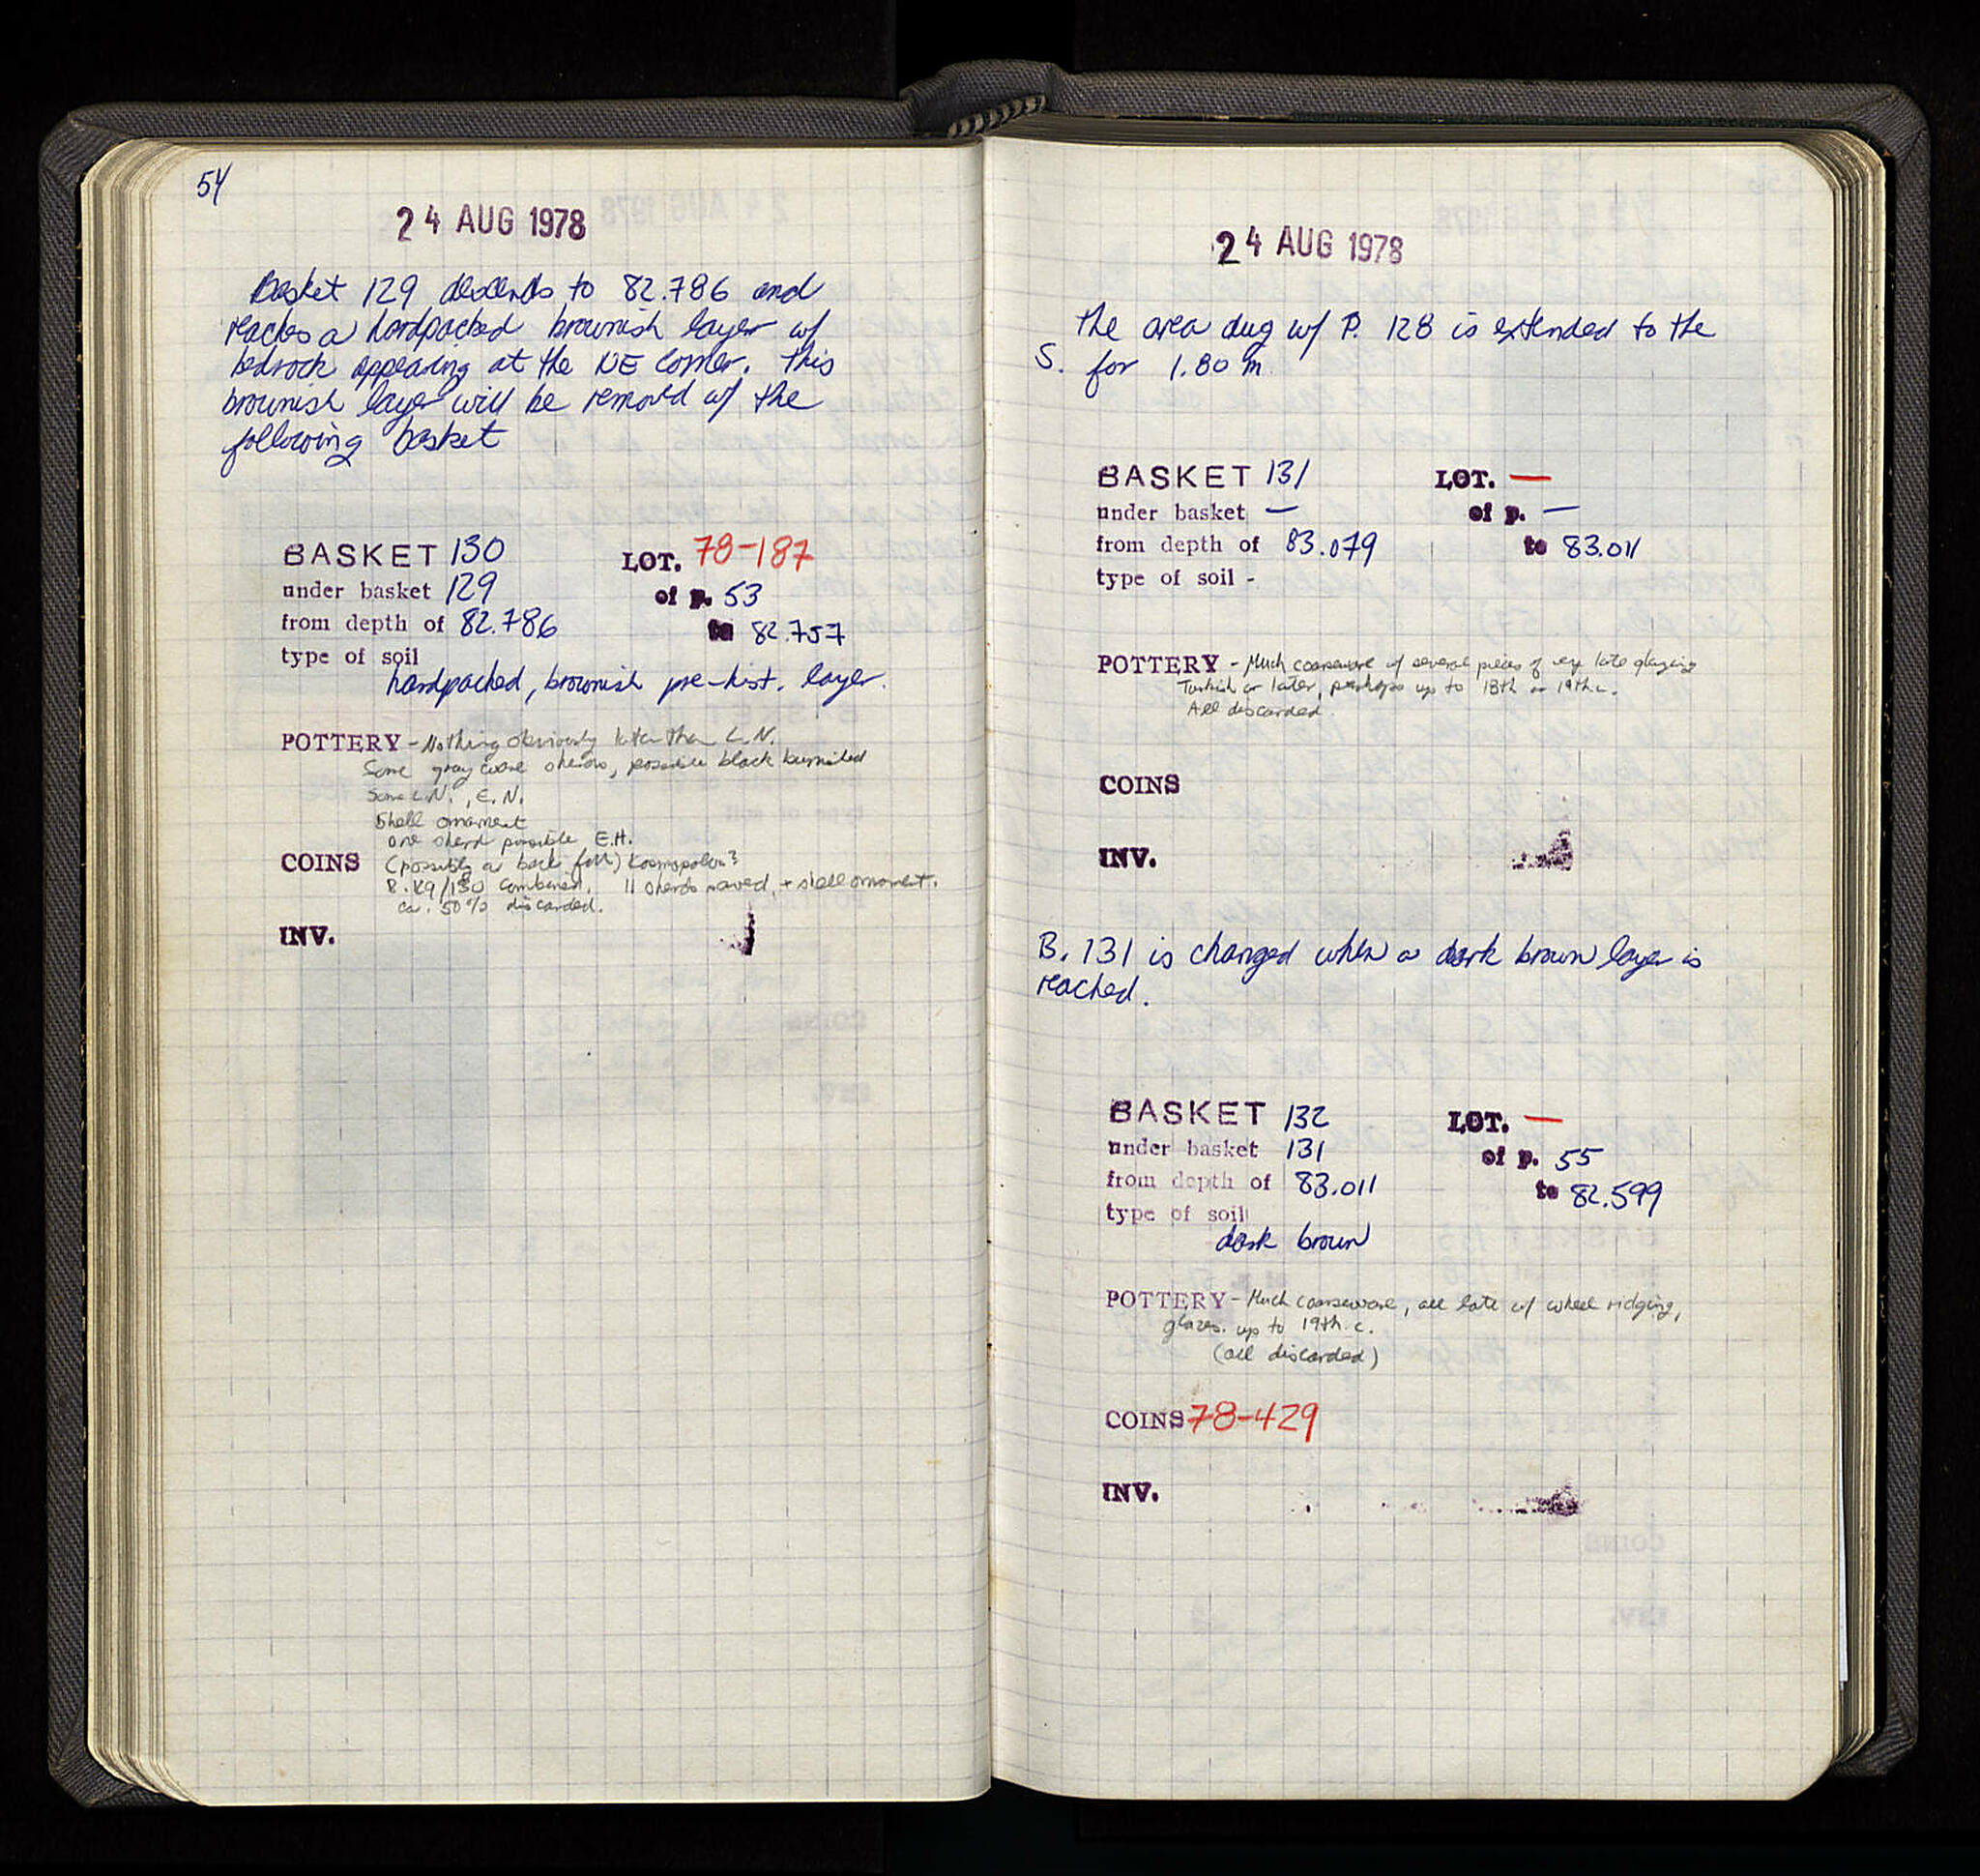 54
24 AUG 1978
Basket 129 descends to 82.786 and
reaches a hardpacked brownish layer w/
bedrock appearing at the NE corner. This
brownish layer will be removed w/ the
following basket
BASKET 130 LOT. 78-187
under basket 129 of p. 53
from depth of 82.786 to 82.757
type of soil
hardpacked, brownish pre-hist. layer.
POTTERY - Nothing obviously later than L.N.
Some gray ware sherds, possible black burnished
Some L.N., E.N.
Shell ornament
one sherd possible E.H.
COINS (possibly a back fall)
B. 129/130 combined. 11 sherds saved, + shell ornament.
ca. 50% discarded.
INV.
24 AUG 1978
The area dug w/ P. 128 is extended to the
S. for 1.80 m
BASKET 131 LOT. —
under basket — of p. —
from depth of 83.079 to 83.011
type of soil -
POTTERY - Much coarseware w/ several pieces of very late glazing
Turkish or later, perhaps up to 18th or 19th c.
All discarded.
COINS
INV.
B. 131 is changed when a dark brown layer is
reached.
BASKET 132 LOT. —
under basket 131 of p. 55
from depth of 83.011 to 82.599
type of soil
dark brown
POTTERY - Much coarseware, all late w/ wheel ridging,
glazes. up to 19th. c.
(all discarded)
COINS 78-429
INV.